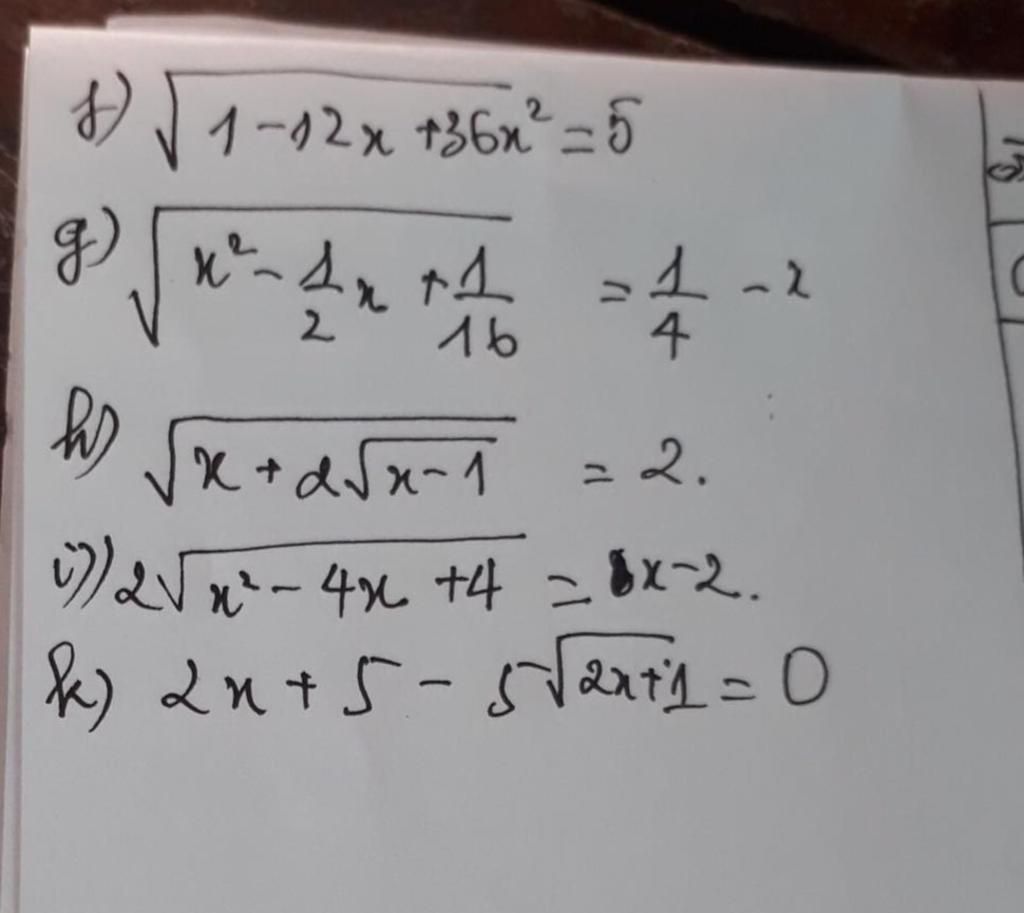 f) √(1-12x+36x²) = 5
g) √(x² - 1/2 x + 1/16) = 1/4 - x
h) √(x + 2√(x-1)) = 2.
i) 2√(x² - 4x + 4) = x-2.
k) 2x + 5 - 5√(2x+1) = 0